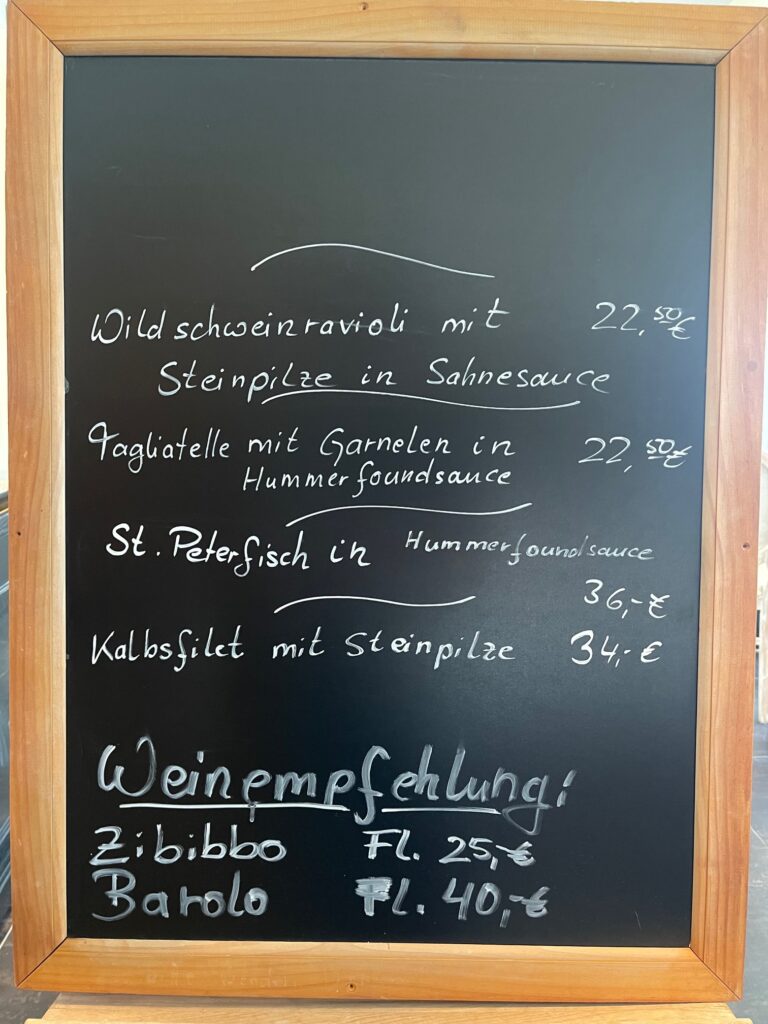 Wildschweinravioli mit 22,50€
Steinpilze in Sahnesauce
Tagliatelle mit Garnelen in 22,50€
Hummerfoundsauce
St. Peterfisch in Hummerfoundsauce
36,-€
Kalbsfilet mit Steinpilze 34,-€
Weinempfehlung:
Zibibbo Fl. 25,-€
Barolo Fl. 40,-€